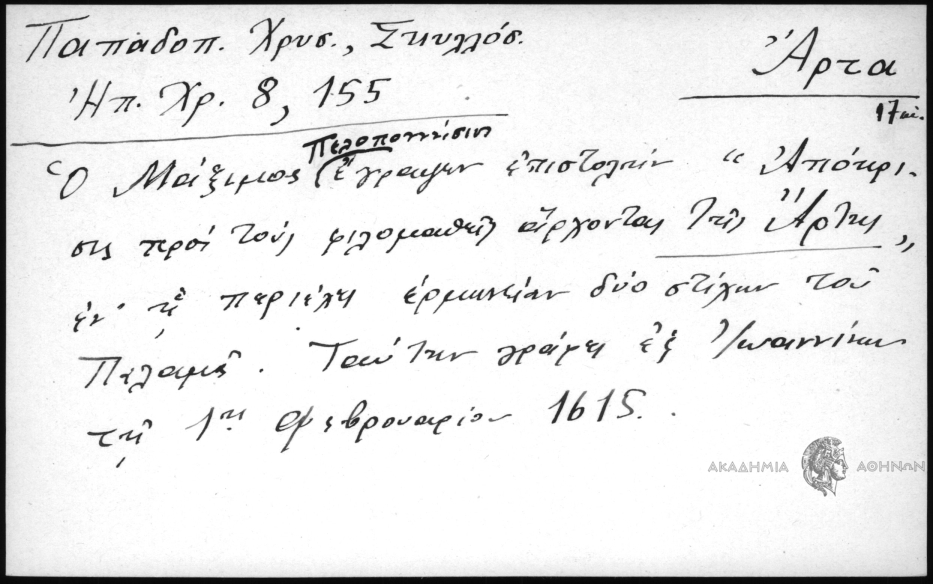 Παπαδοπ. Χρυσ., Σκυλλόσ.
Ἄρτα
Ἠπ. Χρ. 8, 155
17 αἰ.
Πελοποννήσιος
Ὁ Μάξιμος ἔγραψεν ἐπιστολὴν "Ἀπόκρι-
σις πρὸς τοὺς φιλομαθεῖς ἄρχοντας τῆς Ἄρτης„
ἐν τῇ περιέχει ἑρμηνείαν δύο στίχων τοῦ
Ταύτην γράφει ἐξ Ἰωαννίνων
τῇ 1ῃ Φεβρουαρίου 1615.
ΑΚΑΔΗΜΙΑ ΑΘΗΝΩΝ